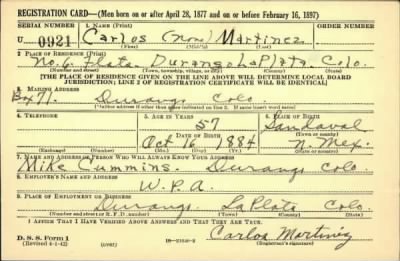 REGISTRATION CARD—(Men born on or after April 28, 1877 and on or before February 16, 1897)
SERIAL NUMBER 1. NAME (Print) ORDER NUMBER
U 0921 Carlos (none) Martinez
(First) (Middle) (Last)
2. PLACE OF RESIDENCE (Print)
No. 6 Plata. Durango La Plata. Colo.
(Number and street) (Town, township, village, or city) (County) (State)
[THE PLACE OF RESIDENCE GIVEN ON THE LINE ABOVE WILL DETERMINE LOCAL BOARD
JURISDICTION; LINE 2 OF REGISTRATION CERTIFICATE WILL BE IDENTICAL]
3. MAILING ADDRESS
Bx 71. Durango Colo
[Mailing address if other than place indicated on line 2. If same insert word same]
4. TELEPHONE 5. AGE IN YEARS 6. PLACE OF BIRTH
57 Sandoval
DATE OF BIRTH (Town or county)
Oct 16 1884 N. Mex.
(Exchange) (Number) (Mo.) (Day) (Yr.) (State or country)
7. NAME AND ADDRESS OF PERSON WHO WILL ALWAYS KNOW YOUR ADDRESS
Mike Cummins. Durango Colo.
8. EMPLOYER'S NAME AND ADDRESS
W.P.A.
9. PLACE OF EMPLOYMENT OR BUSINESS
Durango. La Plata Colo.
(Number and street or R. F. D. number) (Town) (County) (State)
I AFFIRM THAT I HAVE VERIFIED ABOVE ANSWERS AND THAT THEY ARE TRUE.
D. S. S. Form 1
(Revised 4-1-42) (over) Carlos Martinez
(Registrant's signature)